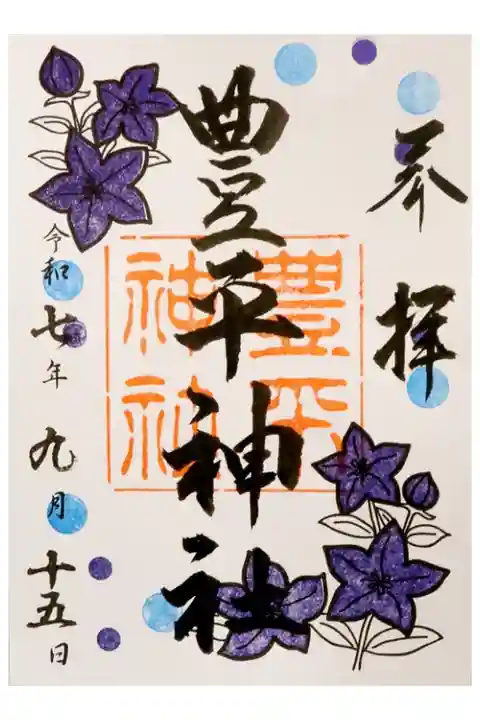 奉拝
豊平神社
豊平神社
令和七年九月十五日